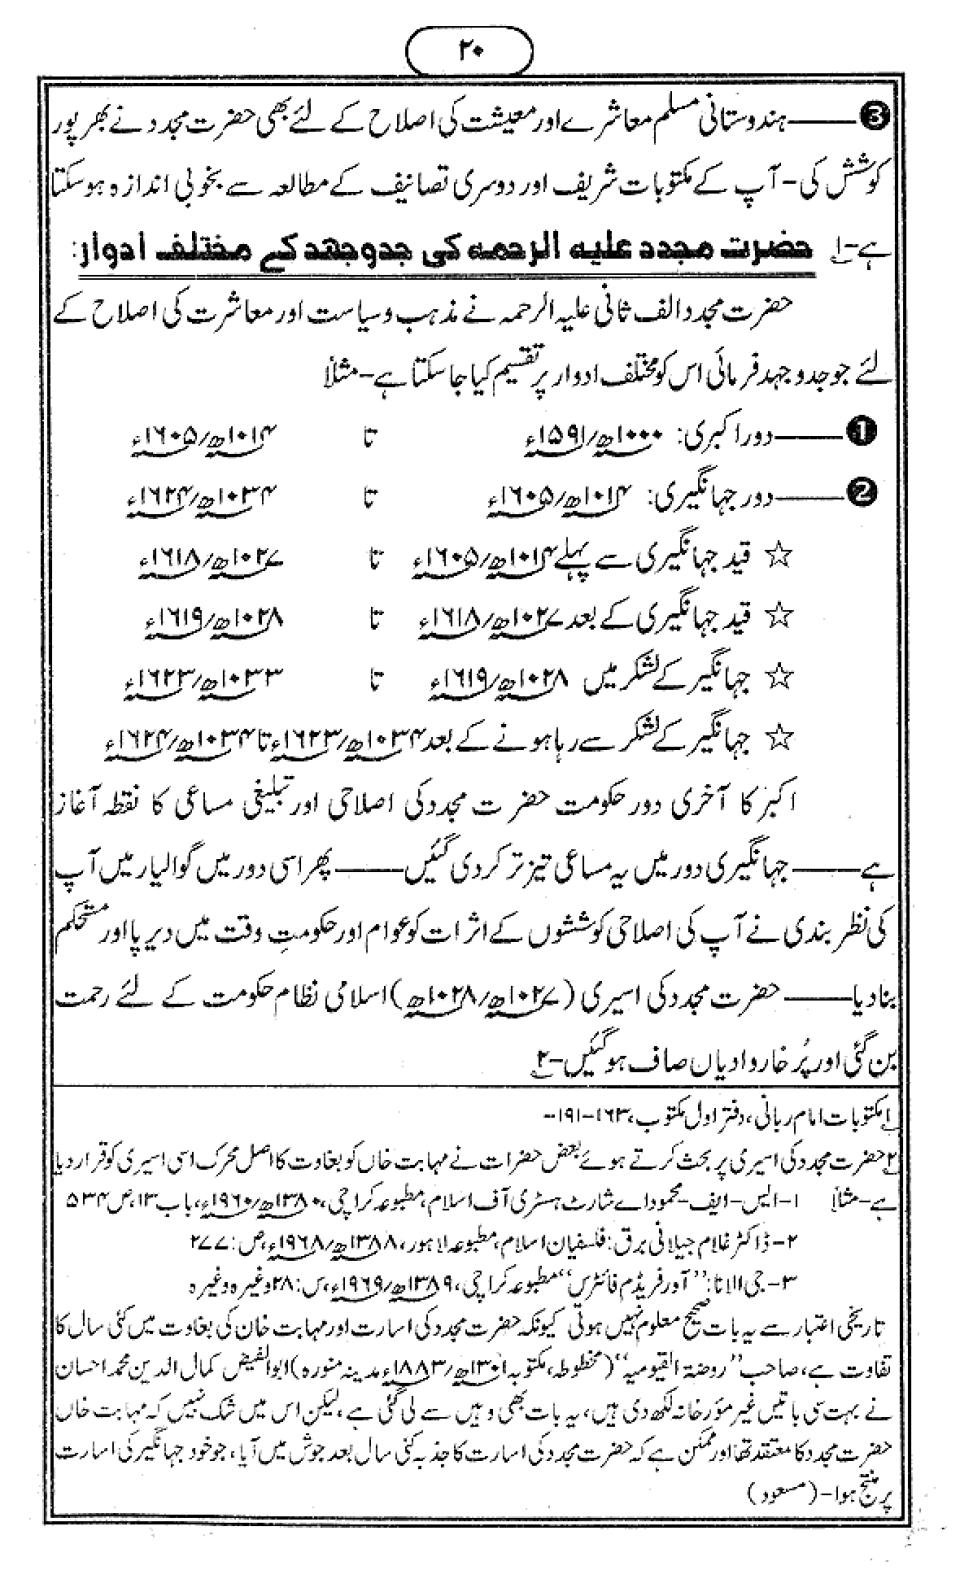 ۲۰
❸——ہندوستانی مسلم معاشرے اور معیشت کی اصلاح کے لئے بھی حضرت مجدد نے بھرپور
کوشش کی-آپ کے مکتوبات شریف اور دوسری تصانیف کے مطالعہ سے بخوبی اندازہ ہوسکتا
ہے-۱
حضرت مجدد علیہ الرحمہ کی جدوجھد کے مختلف ادوار:
حضرت مجدد الف ثانی علیہ الرحمہ نے مذہب وسیاست اور معاشرت کی اصلاح کے
لئے جو جدوجہد فرمائی اس کو مختلف ادوار پر تقسیم کیا جاسکتا ہے-مثلاً
❶——دور اکبری: ۱۰۰۰ھ/۱۵۹۱ء تا ۱۰۱۴ھ/۱۶۰۵ء
❷——دور جہانگیری: ۱۰۱۴ھ/۱۶۰۵ء تا ۱۰۳۴ھ/۱۶۲۴ء
☆ قید جہانگیری سے پہلے ۱۰۱۴ھ/۱۶۰۵ء تا ۱۰۲۷ھ/۱۶۱۸ء
☆ قید جہانگیری کے بعد ۱۰۲۷ھ/۱۶۱۸ء تا ۱۰۲۸ھ/۱۶۱۹ء
☆ جہانگیر کے لشکر میں ۱۰۲۸ھ/۱۶۱۹ء تا ۱۰۳۳ھ/۱۶۲۳ء
☆ جہانگیر کے لشکر سے رہا ہونے کے بعد ۱۰۳۴ھ/۱۶۲۳ء تا ۱۰۳۴ھ/۱۶۲۴ء
اکبر کا آخری دور حکومت حضرت مجدد کی اصلاحی اور تبلیغی مساعی کا نقطہ آغاز
ہے——جہانگیری دور میں یہ مساعی تیز تر کردی گئیں——پھر اسی دور میں گوالیار میں آپ
کی نظر بندی نے آپ کی اصلاحی کوششوں کے اثرات کو عوام اور حکومتِ وقت میں دیرپا اور مستحکم
بنادیا——حضرت مجدد کی اسیری (۱۰۲۷ھ/۱۰۲۸ھ) اسلامی نظام حکومت کے لئے رحمت
بن گئی اور پُرخار وادیاں صاف ہوگئیں-۲
۱ مکتوبات امام ربانی، دفتر اول مکتوب، ۱۶۳-۱۹۱-
۲ حضرت مجدد کی اسیری پر بحث کرتے ہوئے بعض حضرات نے مہابت خاں کو بغاوت کا اصل محرک اسی اسیری کو قرار دیا
ہے-مثلاً ۱-ایس-ایف-محمود اے شارٹ ہسٹری آف اسلام، مطبوعہ کراچی، ۱۳۸۰ھ/۱۹۶۰ء، باب ۱۳، ص ۵۳۴
۲-ڈاکٹر غلام جیلانی برق: فلسفیان اسلام، مطبوعہ لاہور، ۱۳۸۸ھ/۱۹۶۸ء، ص: ۲۷۷
۳-جی الانا: "آور فریڈم فائٹرس" مطبوعہ کراچی، ۱۳۸۹ھ/۱۹۶۹ء، س: ۲۸ وغیرہ وغیرہ
تاریخی اعتبار سے یہ بات صحیح معلوم نہیں ہوتی کیونکہ حضرت مجدد کی اسارت اور مہابت خان کی بغاوت میں کئی سال کا
تفاوت ہے، صاحب "روضۃ القیومیہ" (مخطوطہ، مکتوبہ ۱۳۰۱ھ/۱۸۸۳ء مدینہ منورہ) ابوالفیض کمال الدین محمد احسان
نے بہت سی باتیں غیر مؤرخانہ لکھ دی ہیں، یہ بات بھی وہیں سے لی گئی ہے، لیکن اس میں شک نہیں کہ مہابت خاں
حضرت مجدد کا معتقد تھا اور ممکن ہے کہ حضرت مجدد کی اسارت کا جذبہ کئی سال بعد جوش میں آیا، جو خود جہانگیر کی اسارت
پر منتج ہوا-(مسعود)